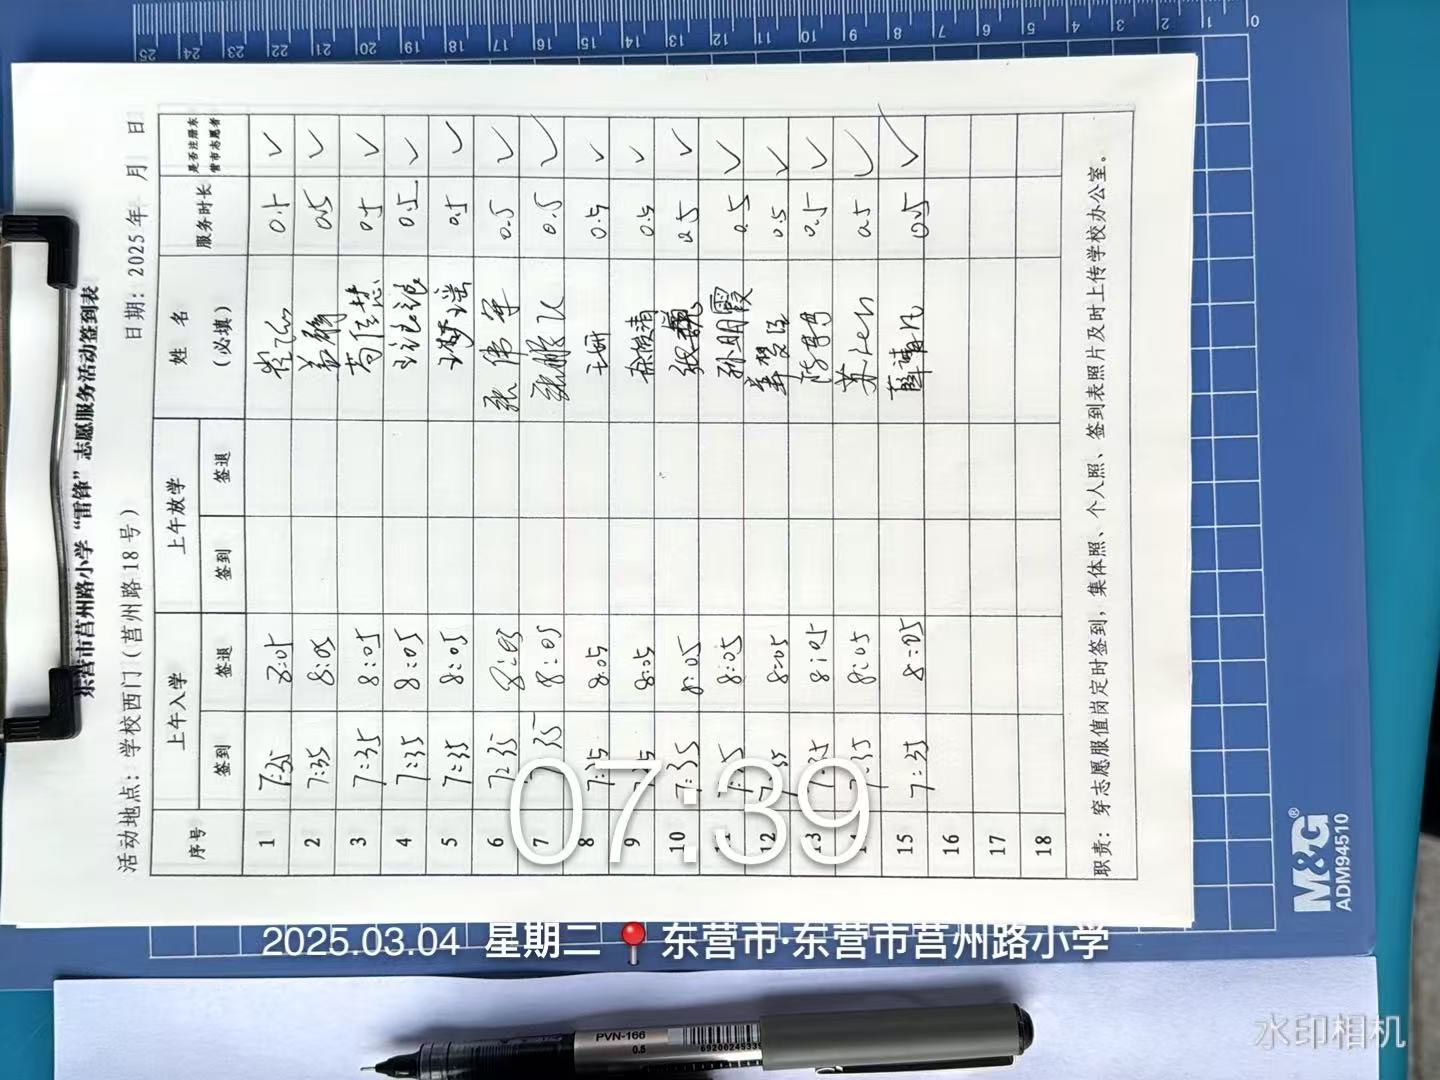 东营市莒州路小学“雷锋”志愿服务活动签到表
活动地点：学校西门（莒州路18号） 日期：2025年 月 日
序号 上午入学 上午放学 姓 名（必填） 服务时长 是否注册东营市志愿者
签到 签退 签到 签退
1 7:35 8:05 0.5 ✓
2 7:35 8:05 0.5 ✓
3 7:35 8:05 0.5 ✓
4 7:35 8:05 0.5 ✓
5 7:35 8:05 0.5 ✓
6 7:35 8:05 张伟华 0.5 ✓
7 7:35 8:05 0.5 ✓
8 7:35 8:05 王妍 0.5 ✓
9 7:35 8:05 0.5 ✓
10 7:35 8:05 张巍 0.5 ✓
11 7:35 8:05 孙明霞 0.5 ✓
12 7:35 8:05 0.5 ✓
13 7:35 8:05 0.5 ✓
14 7:35 8:05 0.5 ✓
15 7:35 8:05 薛清凡 0.5 ✓
16
17
18
职责：穿志愿服值岗定时签到，集体照、个人照、签到表照片及时上传学校办公室。
07:39
2025.03.04 星期二 东营市·东营市莒州路小学
水印相机
M&G
ADM94510
PVN-166
0.5
25 24 23 22 21 20 19 18 17 16 15 14 13 12 11 10 9 8 7 6 5 4 3 2 1 0